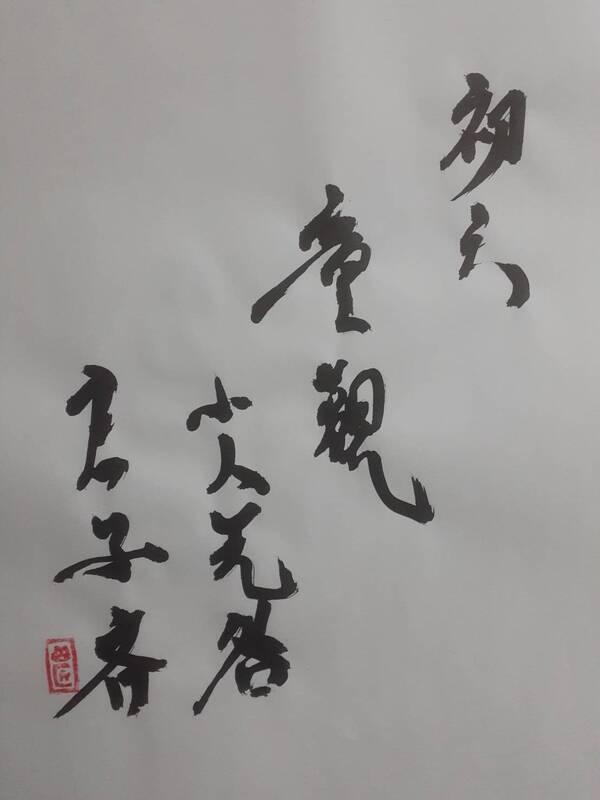 初六
童觀
小人无咎
君子吝